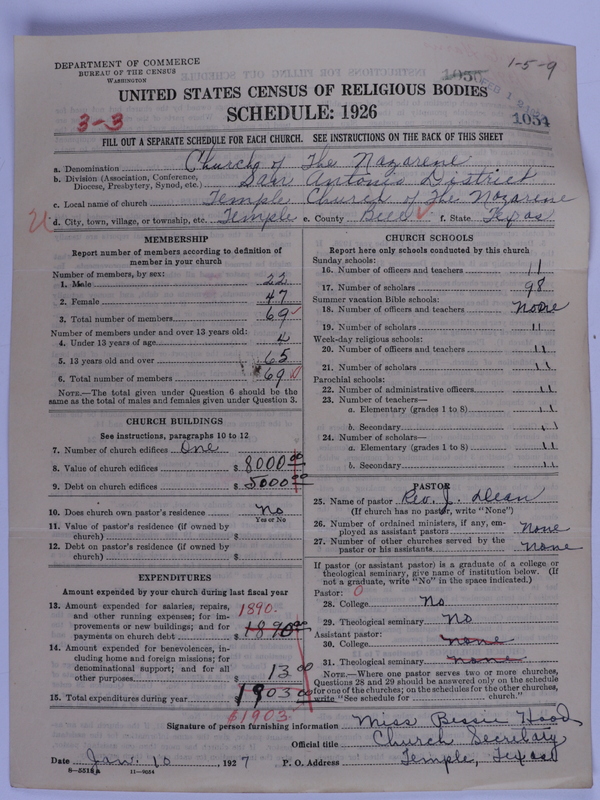 DEPARTMENT OF COMMERCE
BUREAU OF THE CENSUS
WASHINGTON
1-5-9
1054
UNITED STATES CENSUS OF RELIGIOUS BODIES
SCHEDULE: 1926
3-3
FILL OUT A SEPARATE SCHEDULE FOR EACH CHURCH. SEE INSTRUCTIONS ON THE BACK OF THIS SHEET
a. Denomination Church of The Nazarene
b. Division (Association, Conference, Diocese, Presbytery, Synod, etc.) San Antonio District
c. Local name of church Temple Church of The Nazarene
d. City, town, village, or township, etc. Temple e. County Bell f. State Texas
MEMBERSHIP
Report number of members according to definition of
member in your church
Number of members, by sex:
1. Male 22
2. Female 47
3. Total number of members 69
Number of members under and over 13 years old:
4. Under 13 years of age 4
5. 13 years old and over 65
6. Total number of members 69
NOTE.—The total given under Question 6 should be the
same as the total of males and females given under Question 3.
CHURCH BUILDINGS
See instructions, paragraphs 10 to 12
7. Number of church edifices One
8. Value of church edifices $ 8000 00
9. Debt on church edifices $ 5000 00
10. Does church own pastor's residence? No
Yes or No
11. Value of pastor's residence (if owned by
church) $
12. Debt on pastor's residence (if owned by
church) $
EXPENDITURES
Amount expended by your church during last fiscal year
13. Amount expended for salaries, repairs,
and other running expenses; for im-
provements or new buildings; and for
payments on church debt $ 1890 00
1890.
14. Amount expended for benevolences, in-
cluding home and foreign missions; for
denominational support; and for all
other purposes $ 13 00
15. Total expenditures during year $ 1903 00
$1903
CHURCH SCHOOLS
Report here only schools conducted by this church
Sunday schools:
16. Number of officers and teachers 11
17. Number of scholars 98
Summer vacation Bible schools:
18. Number of officers and teachers None
19. Number of scholars 11
Week-day religious schools:
20. Number of officers and teachers 11
21. Number of scholars 11
Parochial schools:
22. Number of administrative officers 11
23. Number of teachers—
a. Elementary (grades 1 to 8) 11
b. Secondary 11
24. Number of scholars—
a. Elementary (grades 1 to 8) 11
b. Secondary 11
PASTOR
25. Name of pastor Rev. J. Dean
(If church has no pastor, write "None")
26. Number of ordained ministers, if any, em-
ployed as assistant pastors None
27. Number of other churches served by the
pastor or his assistants None
If pastor (or assistant pastor) is a graduate of a college or
theological seminary, give name of institution below. (If
not a graduate, write "No" in the space indicated.)
Pastor:
28. College No
29. Theological seminary No
Assistant pastor:
30. College none
31. Theological seminary none
NOTE.—Where one pastor serves two or more churches,
Questions 28 and 29 should be answered only on the schedule
for one of the churches; on the schedules for the other churches,
write "See schedule for church."
Signature of person furnishing information Miss Bessie Hood
Official title Church Secretary
Date Jan. 10 1927 P. O. Address Temple, Texas
8-5518a 11-9054